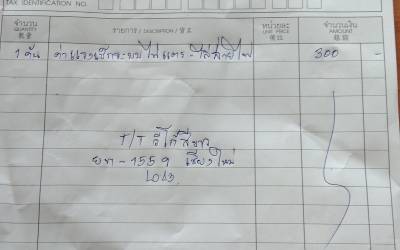 TAX IDENTIFICATION NO.
จำนวน QUANTITY 數量 รายการ / DESCRIPTION / 貨名 หน่วยละ UNIT PRICE 價格 จำนวนเงิน AMOUNT 銀額
1 คัน ค่าแรงเช็กระบบไฟแตร - ไล่สายไฟ 300 -
T/T รีโว่สีขาว
ยท-1559 เชียงใหม่